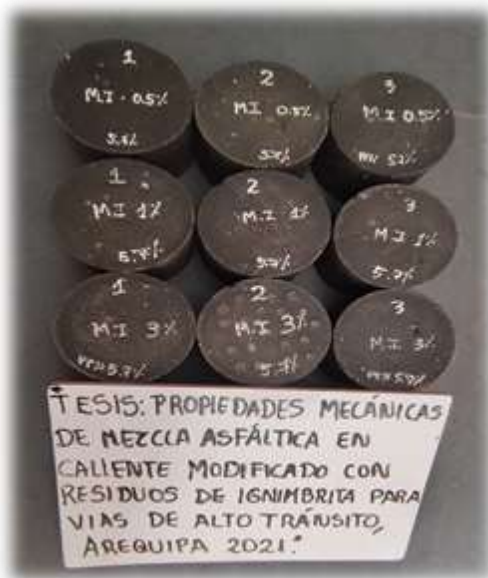 1
M.I - 0.5%
5.7%
2
M.I 0.5%
5.7%
3
M.I 0.5%
5.7%
1
M.I 1%
5.7%
2
M.I 1%
5.7%
3
M.I 1%
5.7%
1
M.I 3%
5.7%
2
M.I 3%
5.7%
3
M.I 3%
5.7%
TESIS: PROPIEDADES MECÁNICAS
DE MEZCLA ASFÁLTICA EN
CALIENTE MODIFICADO CON
RESIDUOS DE IGNIMBRITA PARA
VIAS DE ALTO TRÁNSITO,
AREQUIPA 2021."